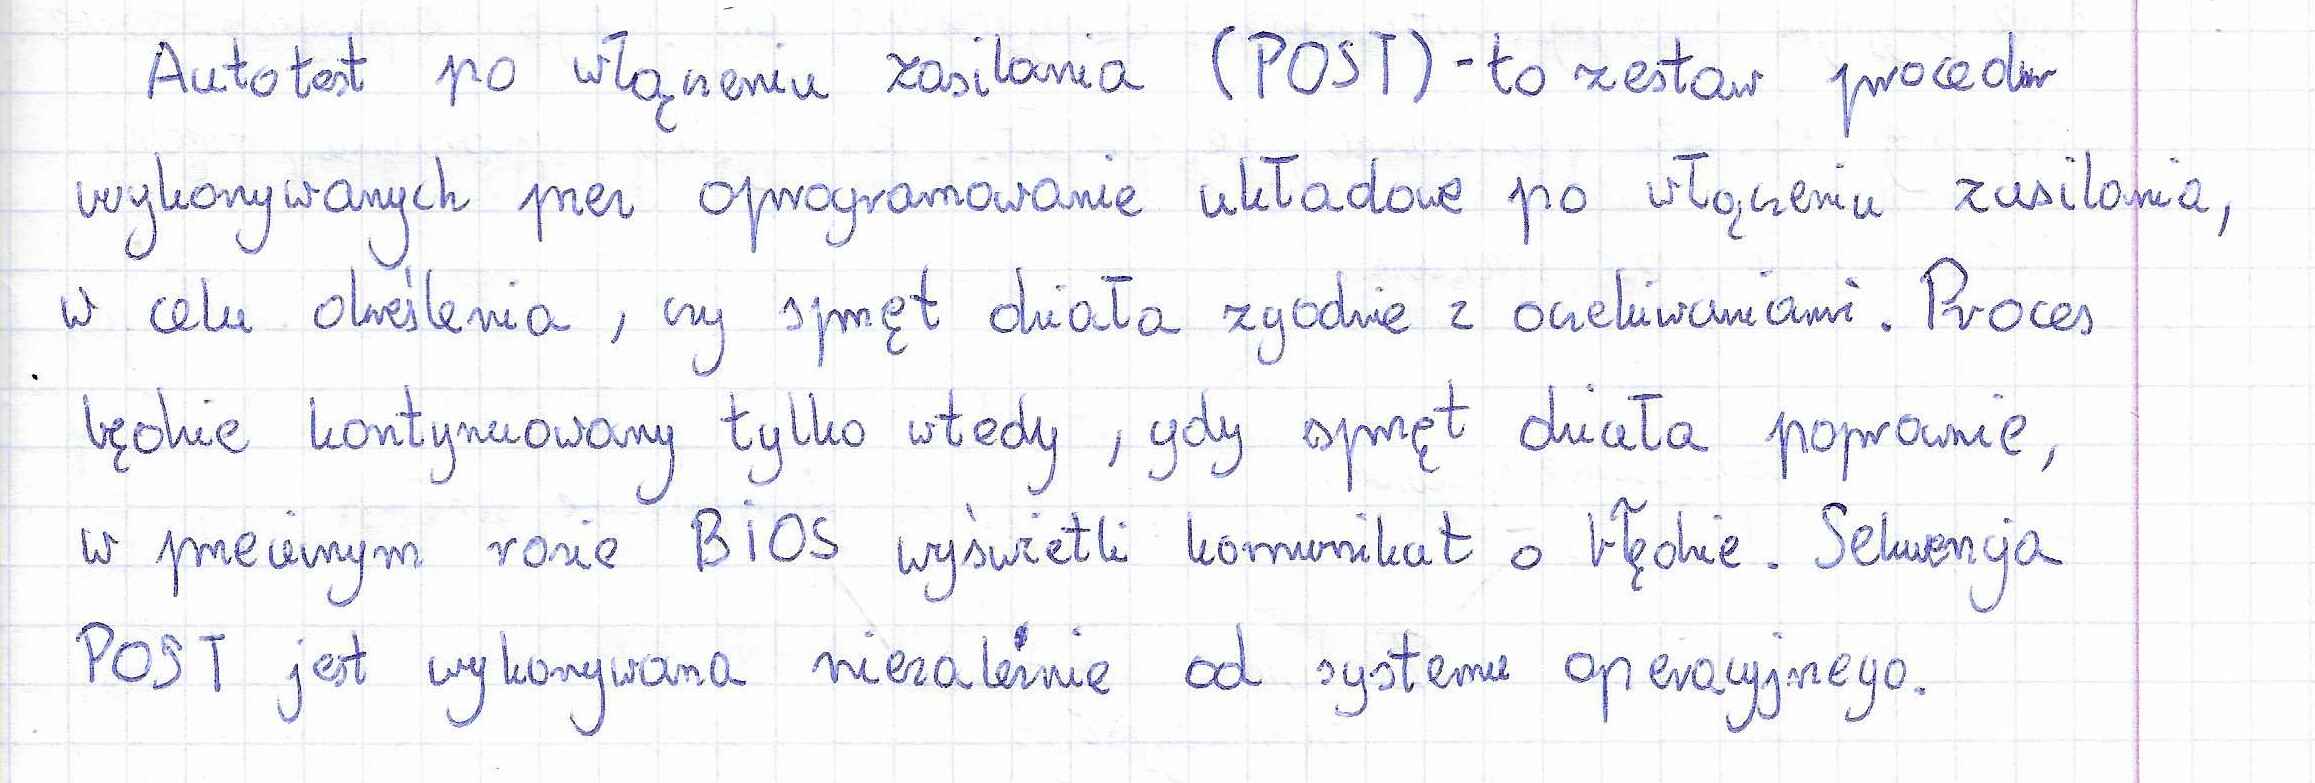 Autotest po włączeniu zasilania (POST) - to zestaw procedur
wykonywanych przez oprogramowanie układowe po włączeniu zasilania,
w celu określenia, czy sprzęt działa zgodnie z oczekiwaniami. Proces
będzie kontynuowany tylko wtedy, gdy sprzęt działa poprawnie,
w przeciwnym razie BIOS wyświetli komunikat o błędzie. Sekwencja
POST jest wykonywana niezależnie od systemu operacyjnego.